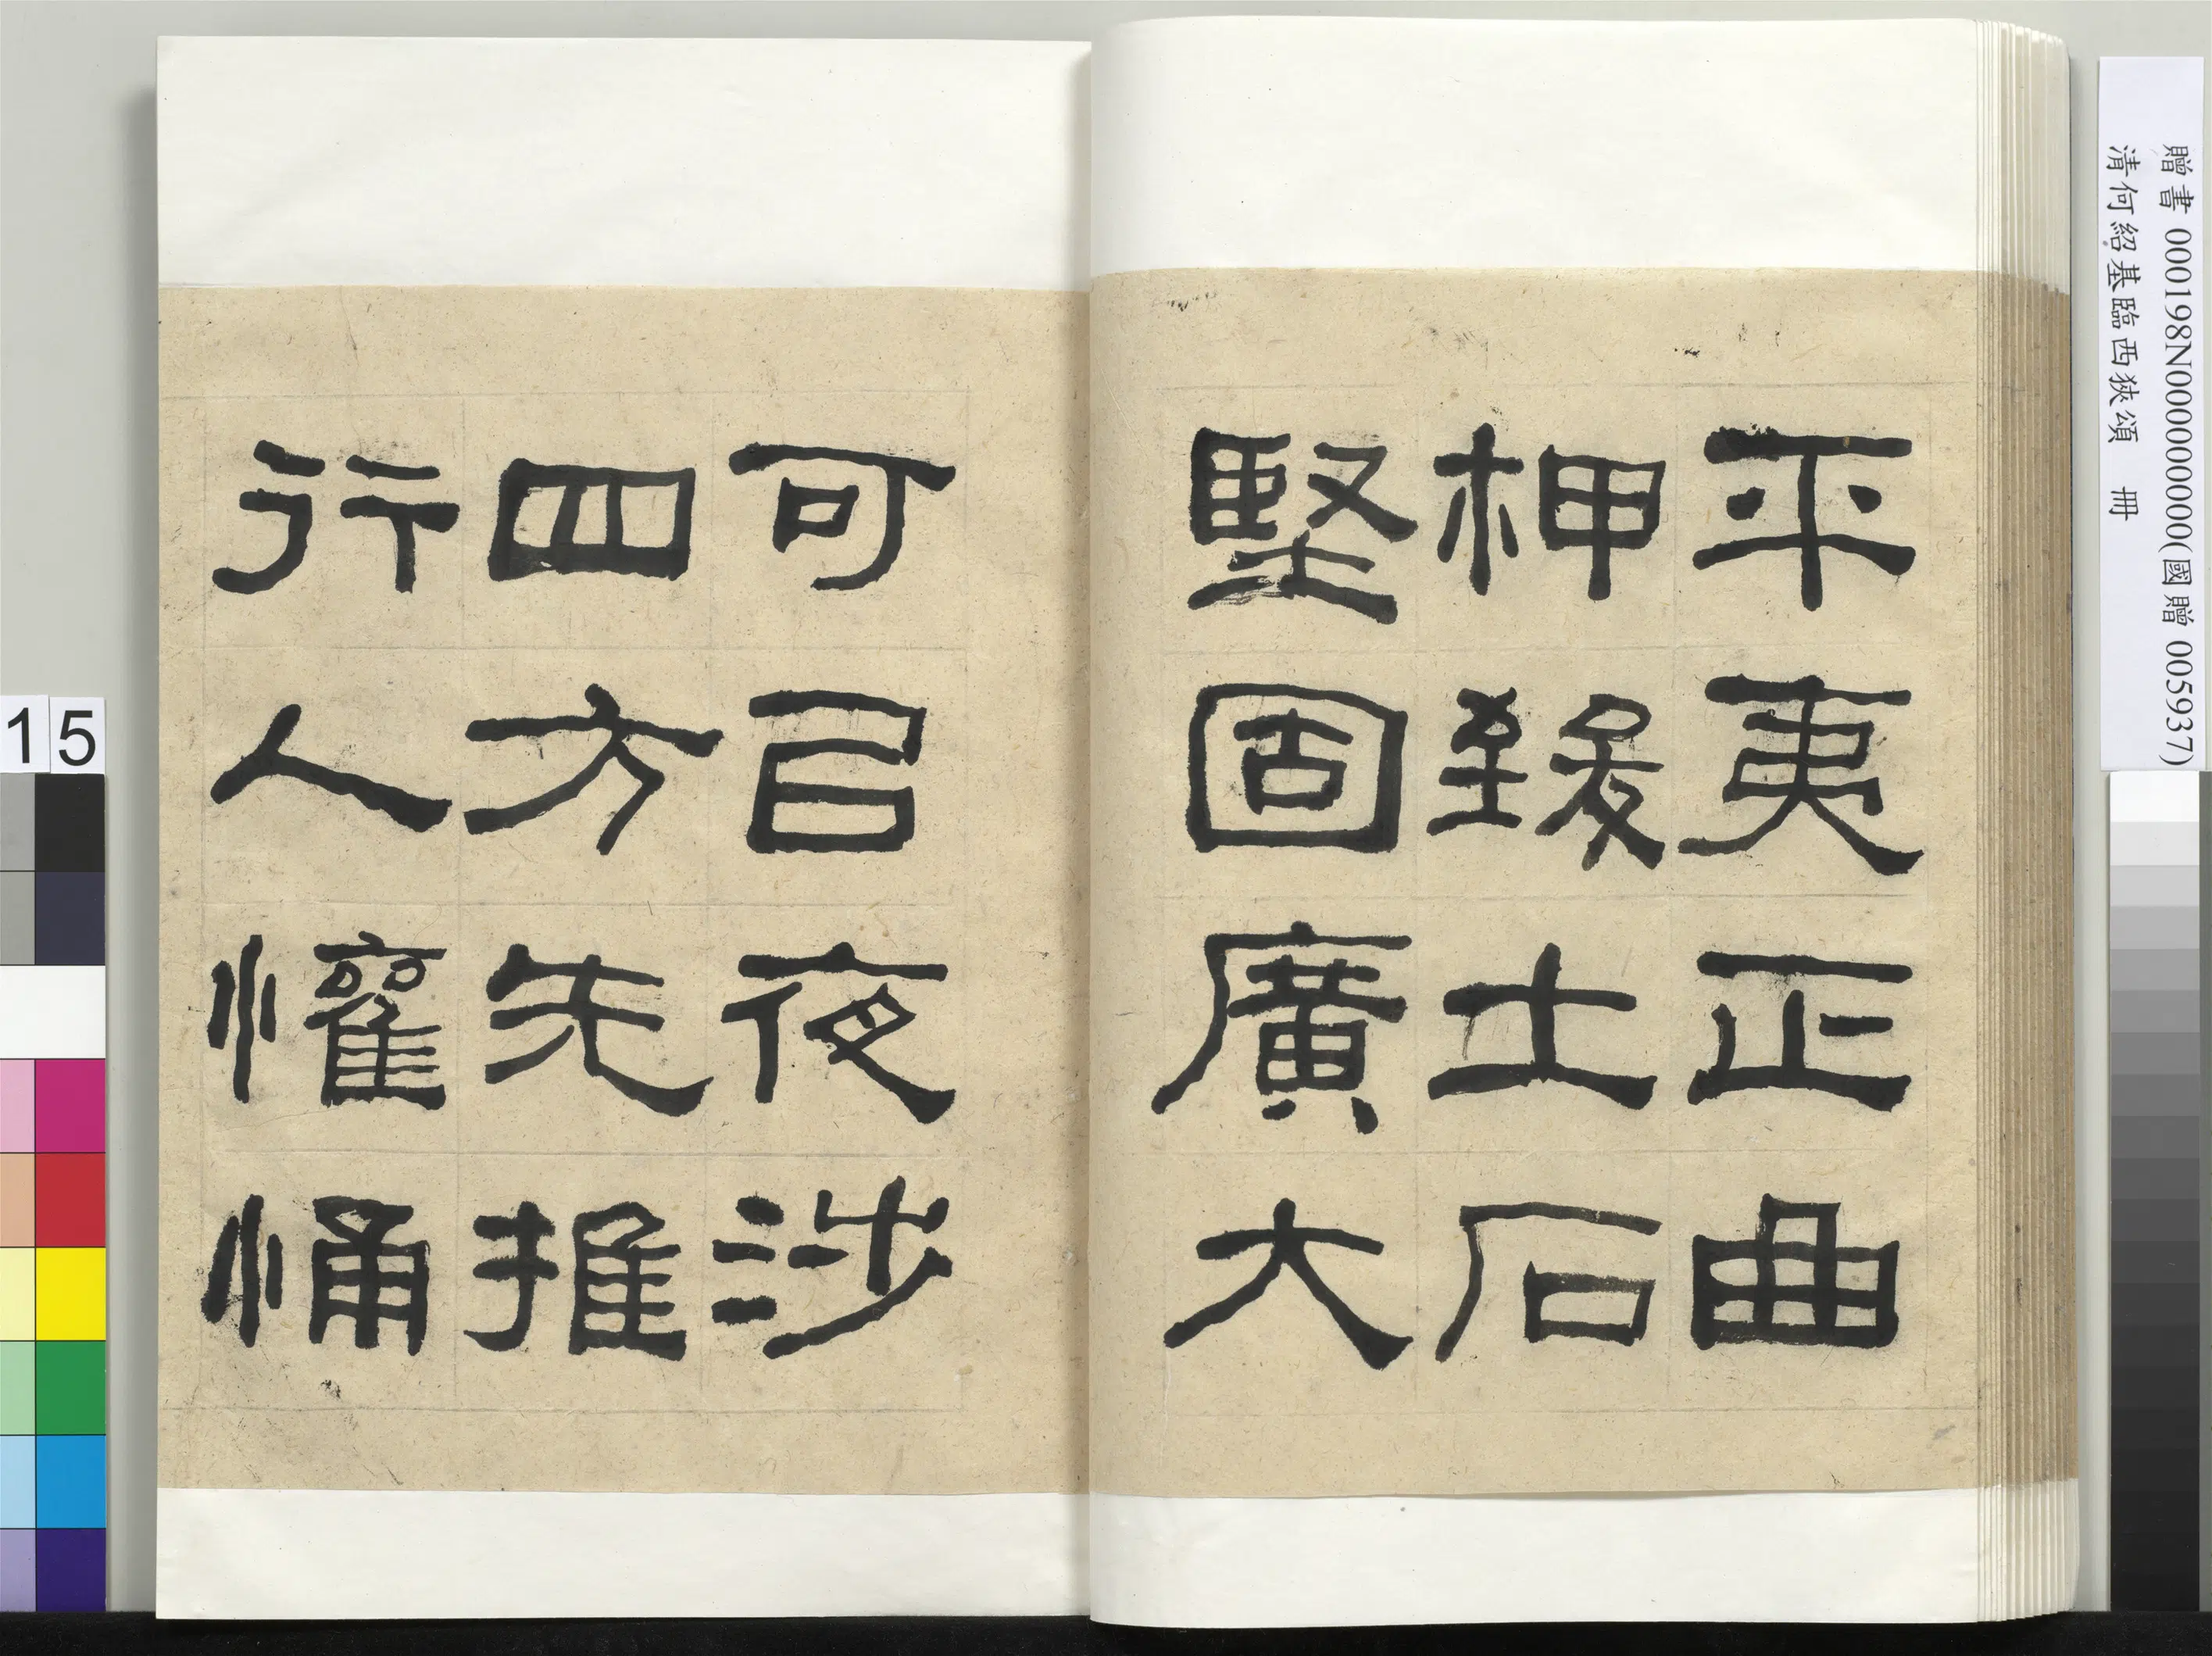 贈書 000198N000000000(國贈 005937)
清何紹基臨西狹頌 冊
平夷正曲
柙緻土石
堅固廣大
可㠯夜涉
四方先推
行人懽悀
15